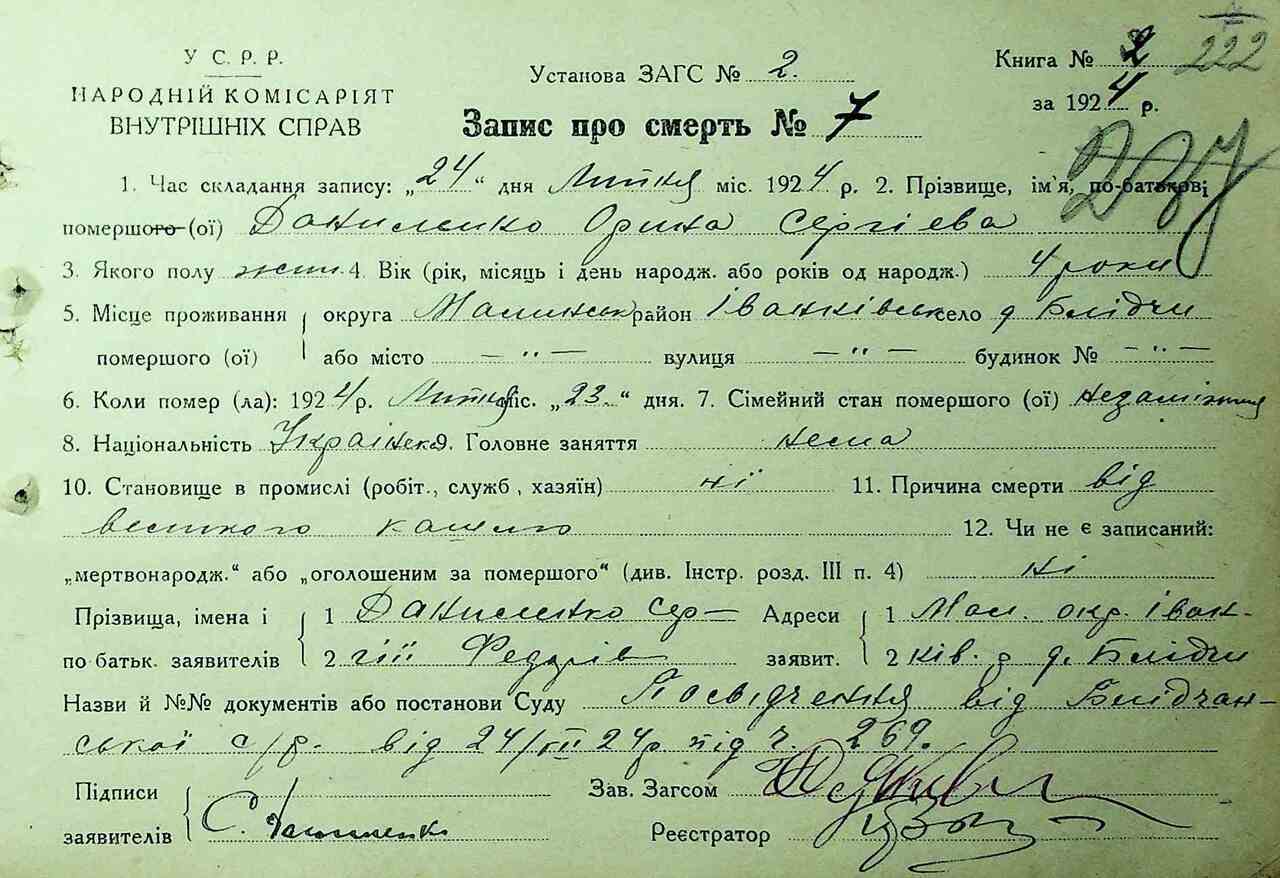 У С. Р. Р.
НАРОДНІЙ КОМІСАРІЯТ
ВНУТРІШНІХ СПРАВ
Установа ЗАГС № 2.
Книга № 2
222
за 1924 р.
Запис про смерть № 7
1. Час складання запису: „24“ дня Липня міс. 1924 р. 2. Прізвище, ім'я, по-батькові
помершого (ої) Даниленко Орина Сергієва
3. Якого полу жін. 4. Вік (рік, місяць і день народж. або років од народж.) 4 роки
5. Місце проживання округа Малинськ район Іванківськ село д Блідчи
помершого (ої) або місто — " — вулиця — " — будинок № — " —
6. Коли помер (ла): 1924 р. Липня міс. „23.“ дня. 7. Сімейний стан помершого (ої) незаміжня
8. Національність Українка 9. Головне заняття нема
10. Становище в промислі (робіт., служб , хазяїн) ні 11. Причина смерти від
великого кашлю 12. Чи не є записаний:
„мертвонародж.“ або „оголошеним за помершого“ (див. Інстр. розд. III п. 4) ні
Прізвища, імена і 1 Даниленко Сер- Адреси 1 Мал. окр. Іван-
по батьк. заявителів 2 гій Федорів заявит. 2 ків. р д. Блідчи
Назви й №№ документів або постанови Суду Посвідчення від Блідчан-
ської с/р. від 24/VII 24р під ч. 269.
Підписи Зав. Загсом
заявителів С. Даниленко Реєстратор